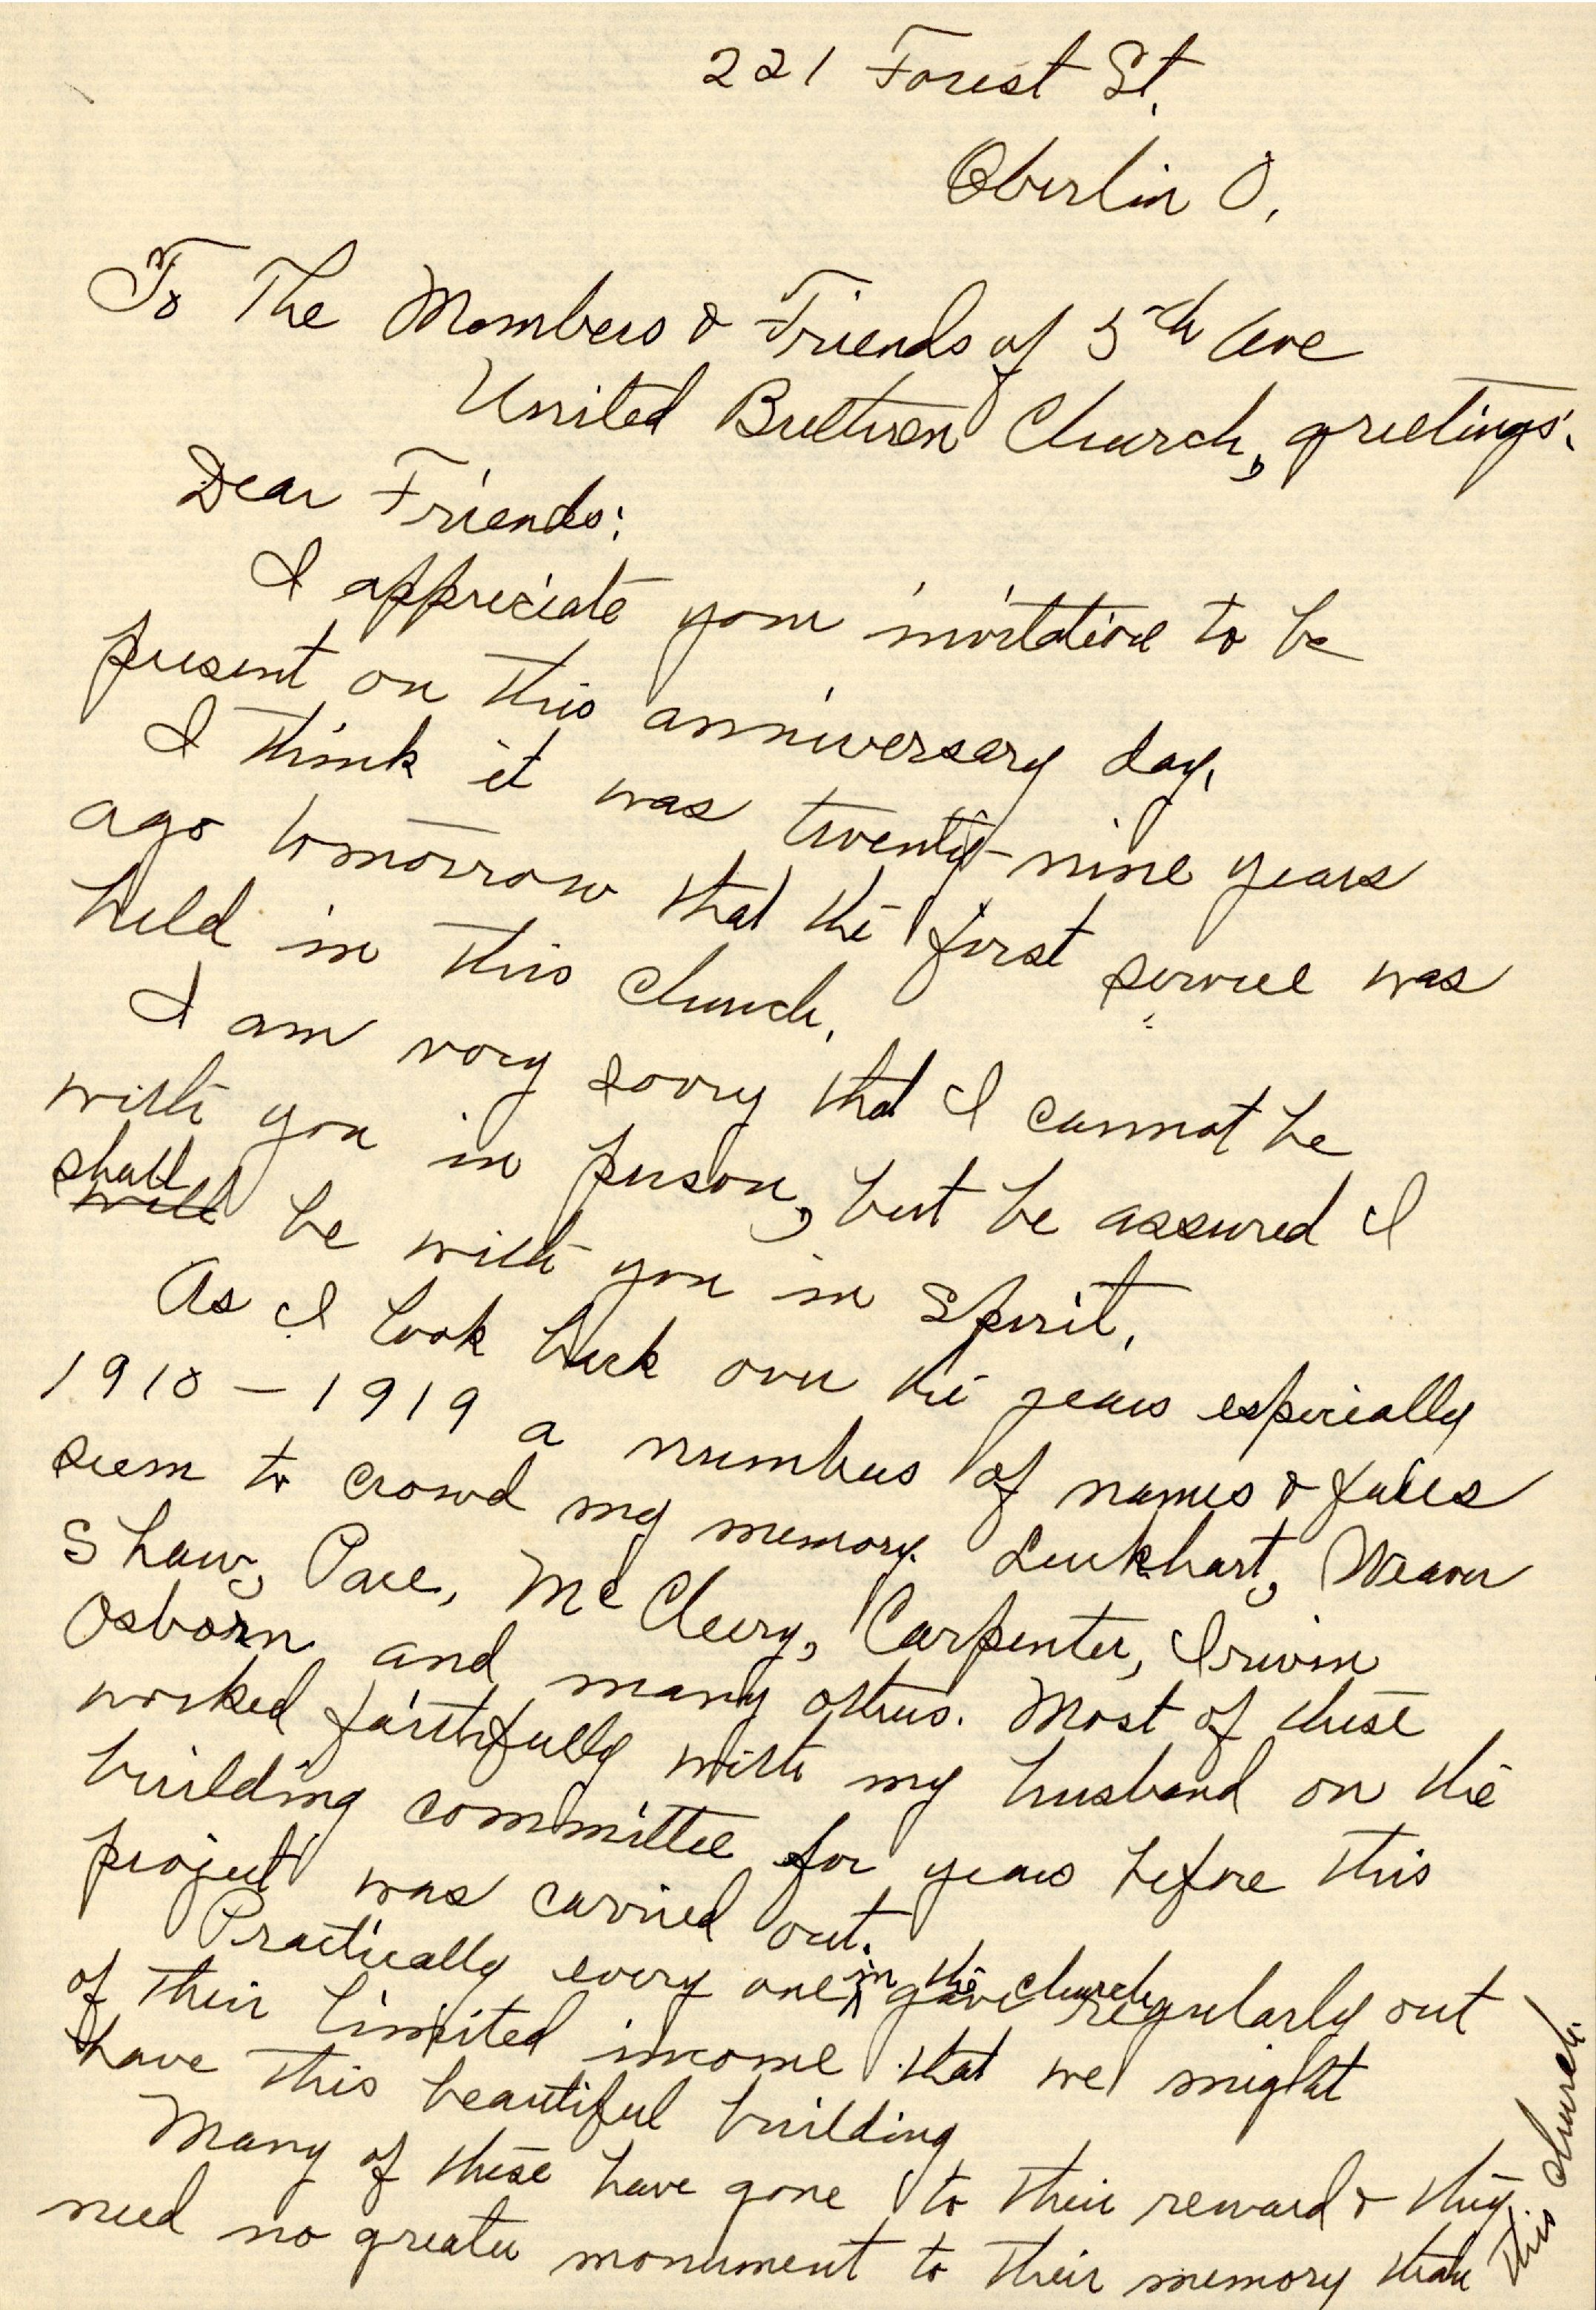 221 Forest St.
Oberlin O.
To The Members & Friends of 5th Ave
United Brethren Church, greetings.
Dear Friends:
I appreciate your invitation to be
present on this anniversary day.
I think it was twenty-nine years
ago tomorrow that the first service was
held in this church.
I am very sorry that I cannot be
with you in person, but be assured I
shall will be with you in spirit.
As I look back over the years especially
1910 – 1919 a number of names & faces
seem to crowd my memory. Luckhart, Weaver
Shaw, Pace, McCleery, Carpenter, Irwin
Osborn and many others. Most of these
worked faithfully with my husband on the
building committee for years before this
project was carried out.
Practically every one in the church gave regularly out
of their limited income that we might
have this beautiful building
Many of these have gone to their reward & they
need no greater monument to their memory than this church.